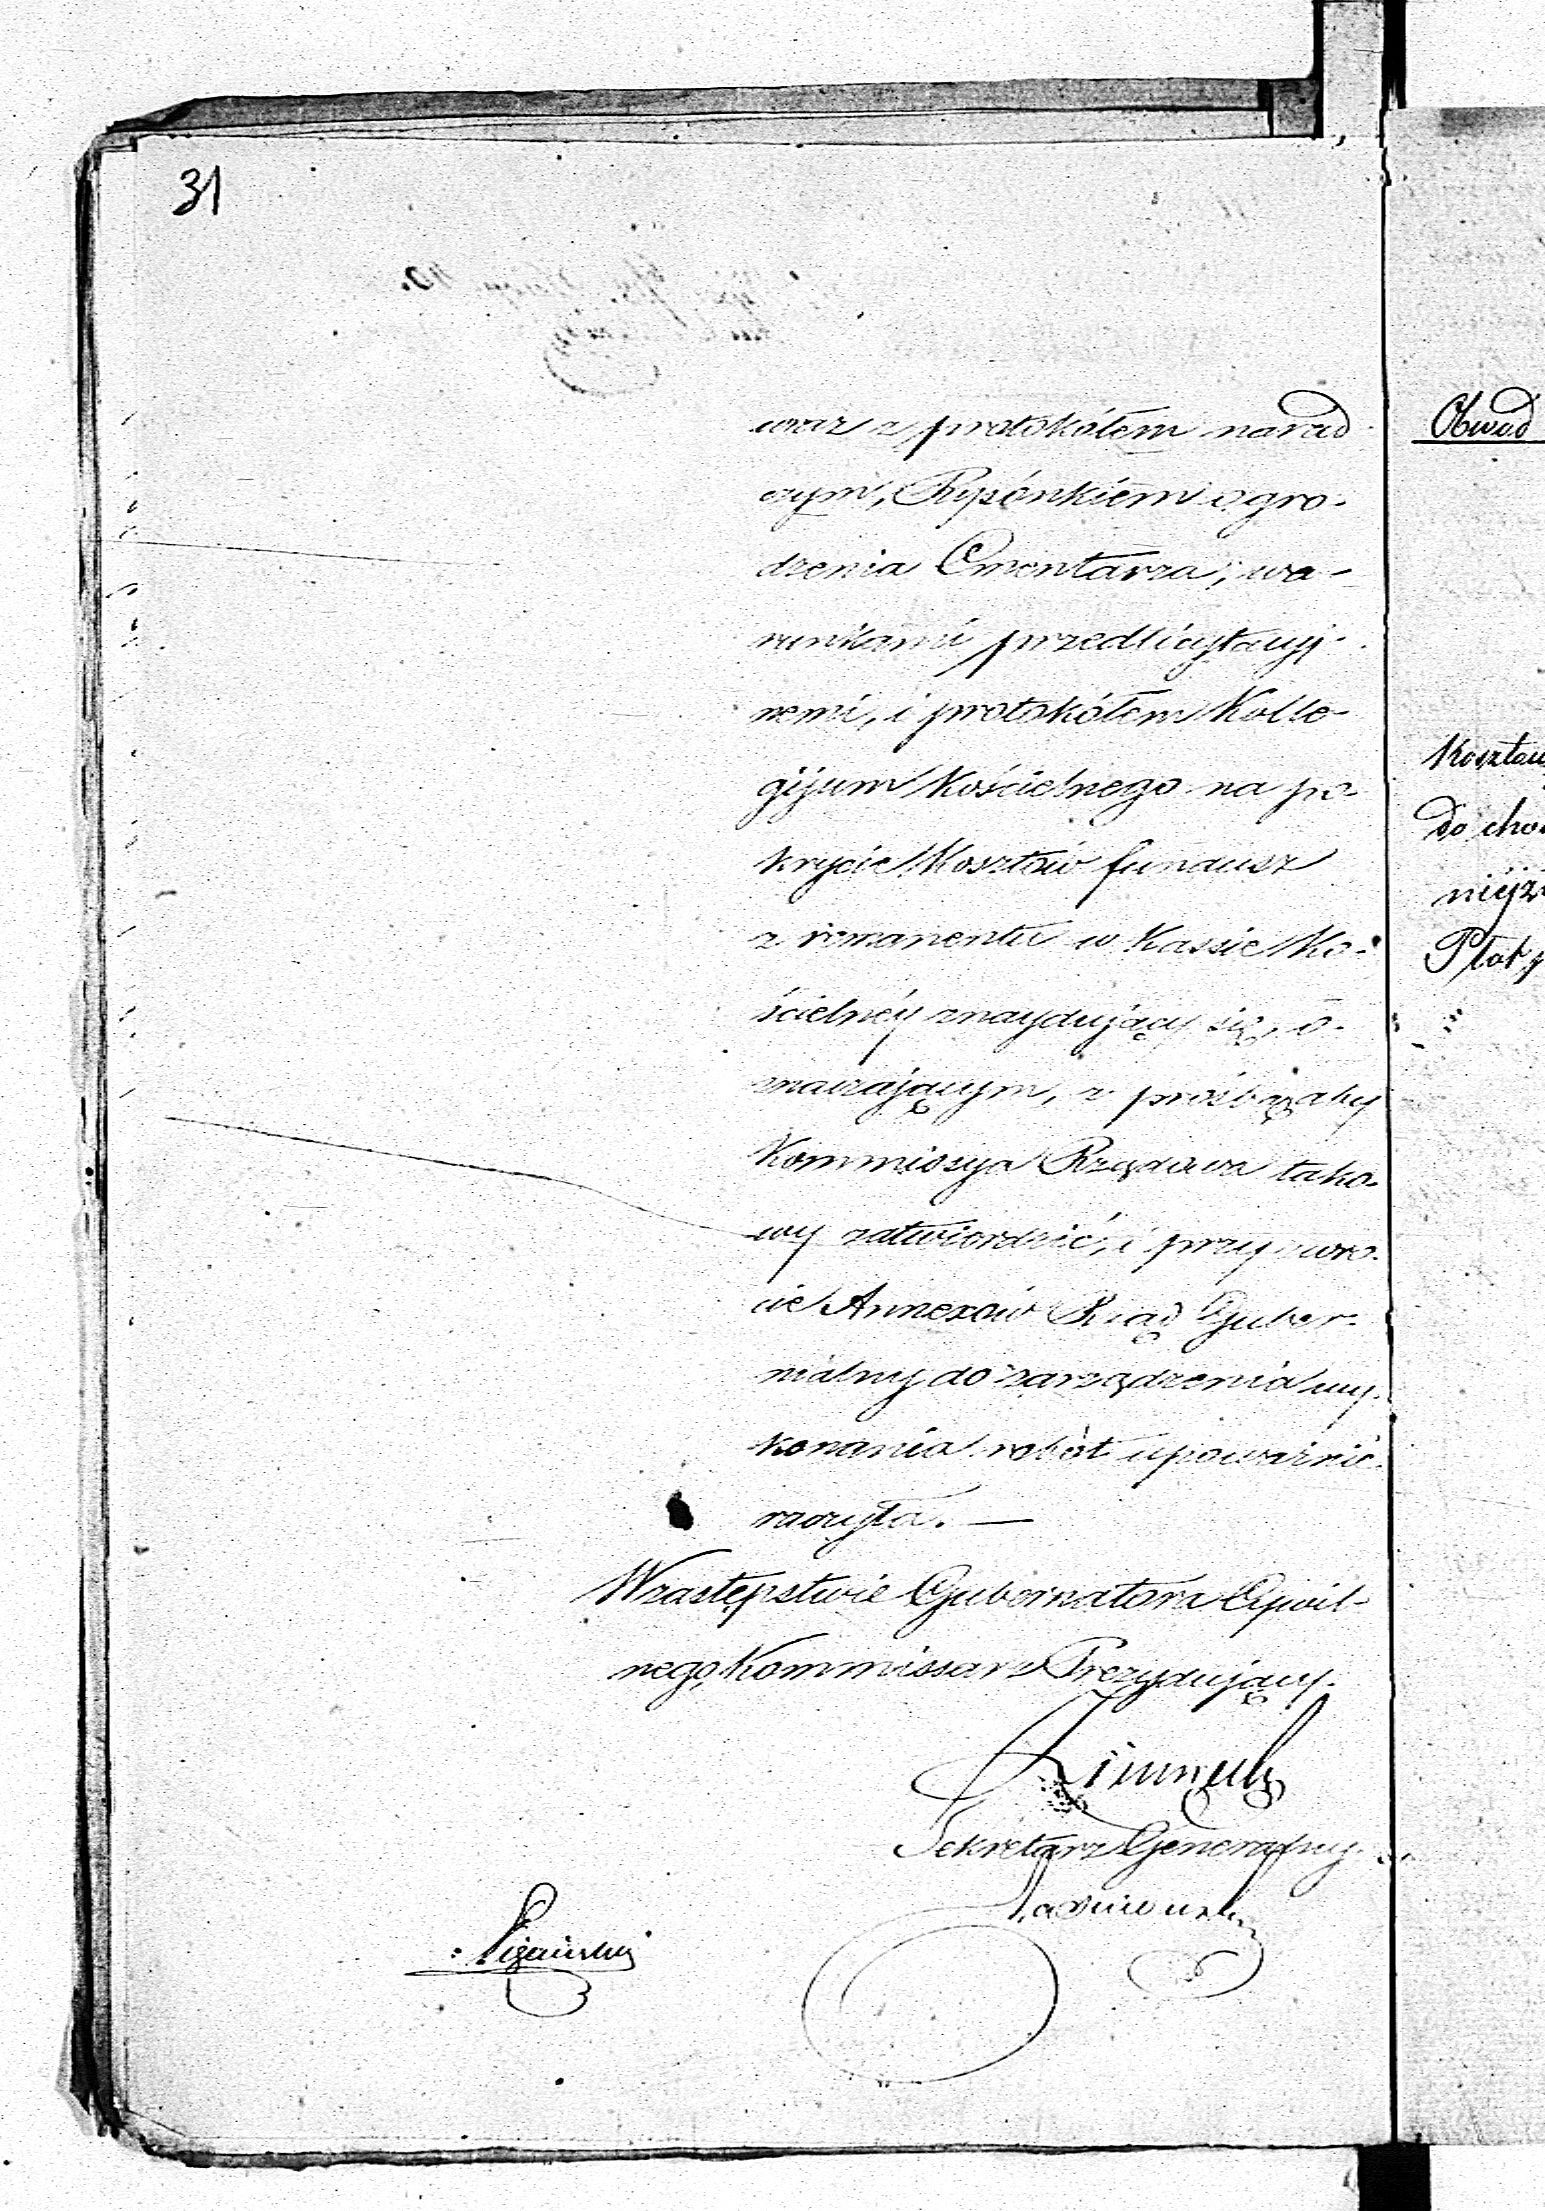 31
wraz z protokółem narad
czym, Rysónkiem ogro-
dzenia Cmentarza, wa-
runkami przedlicytacyj-
nemi, i protokółem Kolle-
gijum Kościelnego na po-
krycie Kosztów fundusz
z remanentu w Kassie Ko-
ścielnéy znaydujący się, o-
znaczającym, z prośbą aby
Kommissya Rządowa tako-
wy zatwierdzić, i przy zwro-
cie Annexów Rząd Guber-
nialny do zarządzenia wy-
konania robót upoważnić
raczyła. —
W zastępstwie Gubernatora Cywil-
nego, Kommissarz Prezydujący.
Sekretarz Generalny
Obwód
Kosztow
Do cho
niéyz
Płat